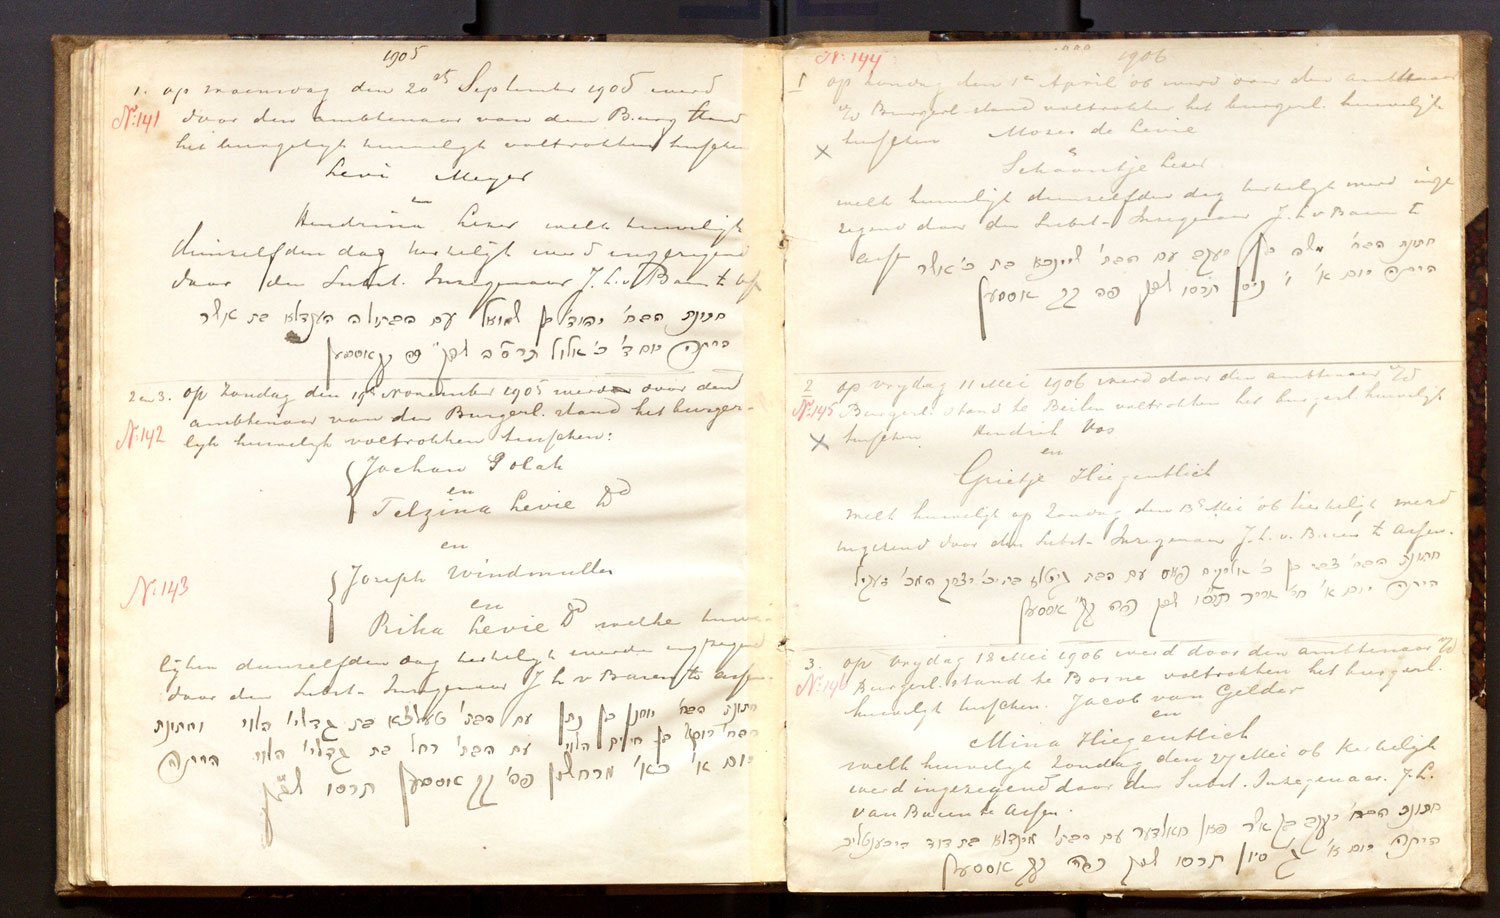 1905
1. op woensdag den 20st September 1905 werd
No 141 door den ambtenaar van den Burg. stand
het burgelijk huwelijk voltrokken tusschen
Levi Meyer
en
Hendrina Leser welk huwelijk
denzelfden dag kerkelijk werd ingezegend
door den Subst. Inzegenaar J. L. v Baren te Ass
חתונת הבח' יהודי בן שמואל עם הבתולה העקדלא בת אשר
היתה יום ד' כ' אלול תרס"ה לפק" פה קק אססען
2 en 3. op Zondag den 19n November 1905 werden voor den
No 142 ambtenaar van den Burgerl. stand het burger-
lijk huwelijk voltrokken tusschen:
Jochan Polak
en
Telzina Levie Dd
en
No 143 Joseph Windmuller
en
Rika Levie Dd welke huwe-
lijken denzelfden dag kerkelijk werden ingezegend
door den Subst. Inzegenaar J L v Baren te Assen.
חתונת הבח' יוחנן בן נתן עם הבת' טעלצא בת גדלי' הלוי וחתונת
הבח' יוסף בן חיים הלוי עם הבת' רחל בת גדלי' הלוי היתה
יום א' כ"א' מרחשון פה' קק אססען תרסו לפק
No 144 1906
1 op Zondag den 1n April 06 werd voor den ambtenaar
v/d Burgerl. stand voltrokken het burgerl. huwelijk
tusschen Mozes de Levie
en
Schoontje Leser
welk huwelijk denzelfden dag kerkelijk werd inge
zegend door den Subst. Inzegenaar J. L. v Baren te
Assen חתונת הבח' משה בן יעקב עם הבת' שיינכא בת כ' אשר
היתה יום א' ו' ניסן תרסו לפק פה קק אססען
2 op vrydag 11 Mei 1906 werd door den ambtenaar v/d
No 145 Burgerl. stand te Beilen voltrokken het burgerl. huwelijk
tusschen Hendrik Vos
en
Grietje Hiegentlich
welk huwelijk op Zondag den 13n Mei 06 kerkelijk werd
ingezend door den Subst. Inzegenaar J. L. v. Baren te Assen.
חתונת הבח' צבי בן כ' אליקים פאס עם הבת' גיטלא בת כ' יצחק המכ'
היתה יום א' חי' אייר תרסו לפק פה קק אססען
3. op Vrydag 18 Mei 1906 werd door den ambtenaar v/d
No 146 Burgerl. stand te Borne voltrokken het burgerl.
huwelijk tusschen. Jacob van Gelder
en
Mina Hiegentlich
welk huwelijk Zondag den 27 Mei 06 Kerkelijk
werd ingezegend door den Subst. Inzegenaar. J. L.
van Baren te Assen.
חתונת הבח' יעקב בן אשר פאן חאלדער עם הבת' מינדלא בת דוד היגענטליך
היתה יום א' ג' סיון תרסו לפק פה קק אססען